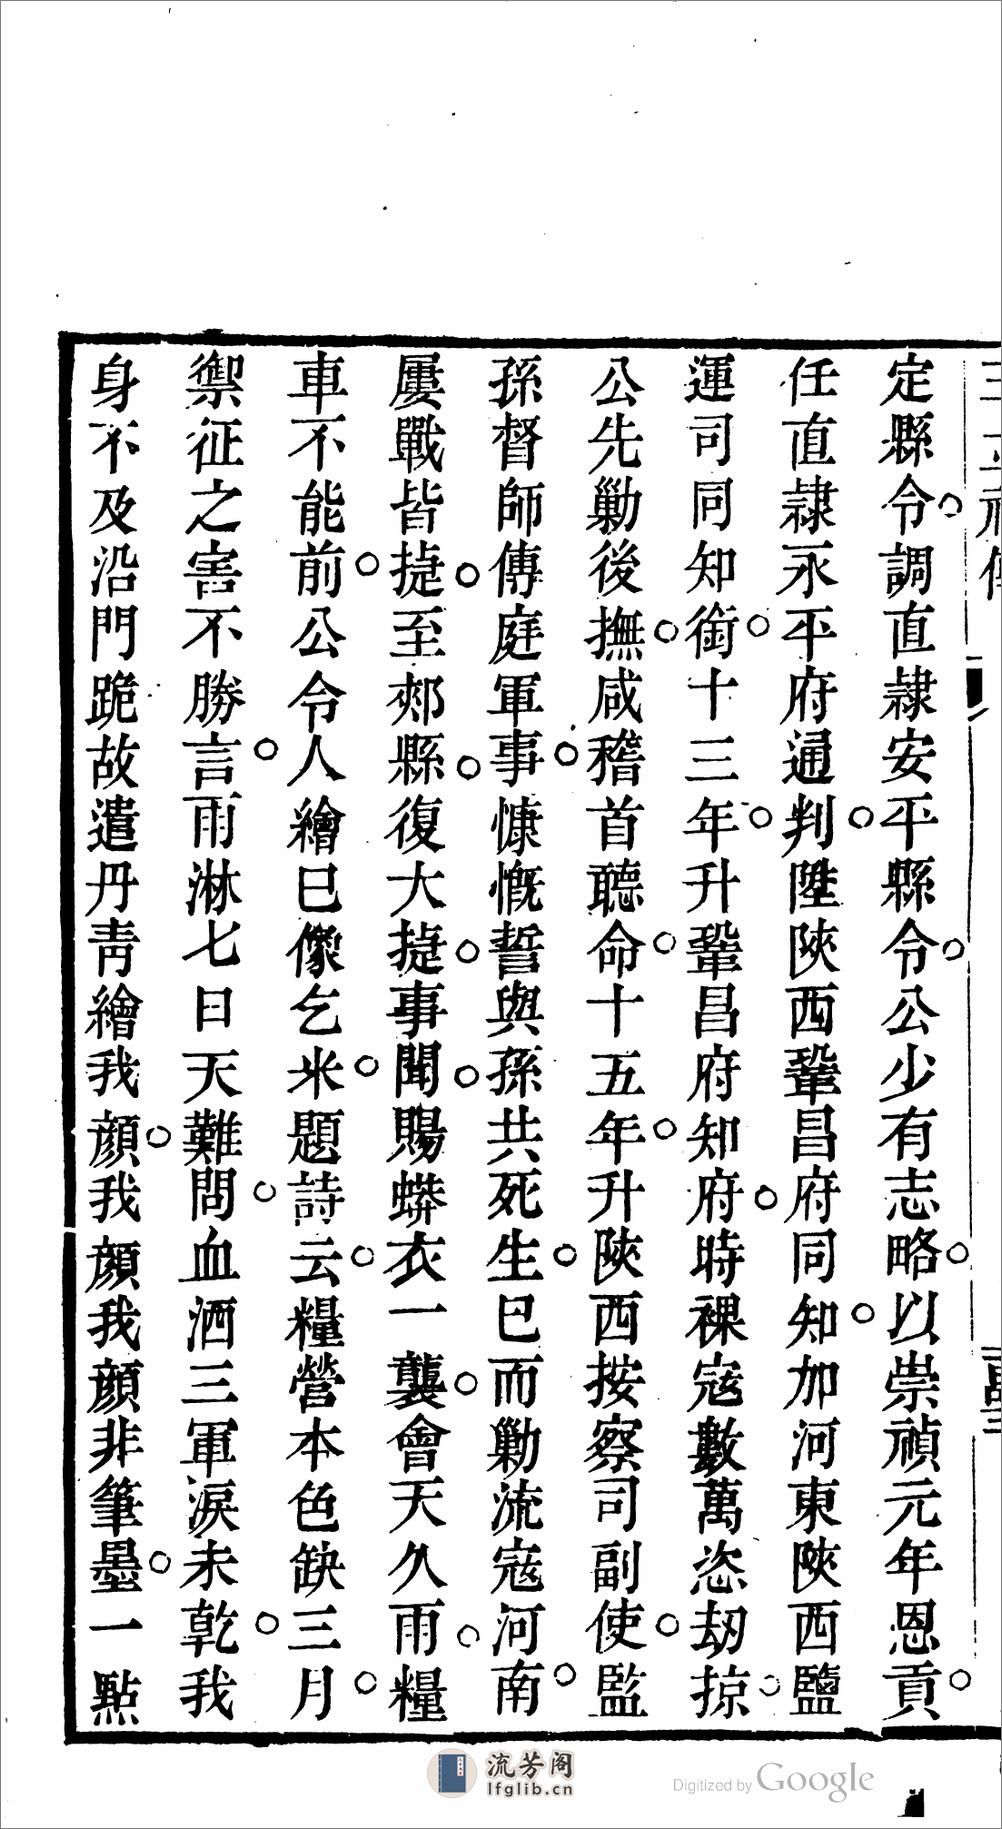 定縣令。調直隸安平縣令。公少有志略。以崇禎元年恩貢。
任直隸永平府通判。陞陝西鞏昌府同知。加河東陝西鹽
運司同知銜。十三年。升鞏昌府知府。時裸寇數萬恣劫掠。
公先勦後撫。咸稽首聽命。十五年。升陝西按察司副使。監
孫督師傳庭軍事。慷慨誓與孫共死生。巳而勦流寇河南。
屢戰皆捷。至郟縣。復大捷。事聞。賜蟒衣一襲。會天久雨。糧
車不能前。公令人繪巳像乞米。題詩云。糧營本色缺三月。
禦征之害不勝言。雨淋七日天難問。血洒三軍淚未乾。我
身不及沿門跪故遣丹靑繪我顔。我顔我顔非筆墨。一點
流芳阁
lfglib.cn
Digitized by Google